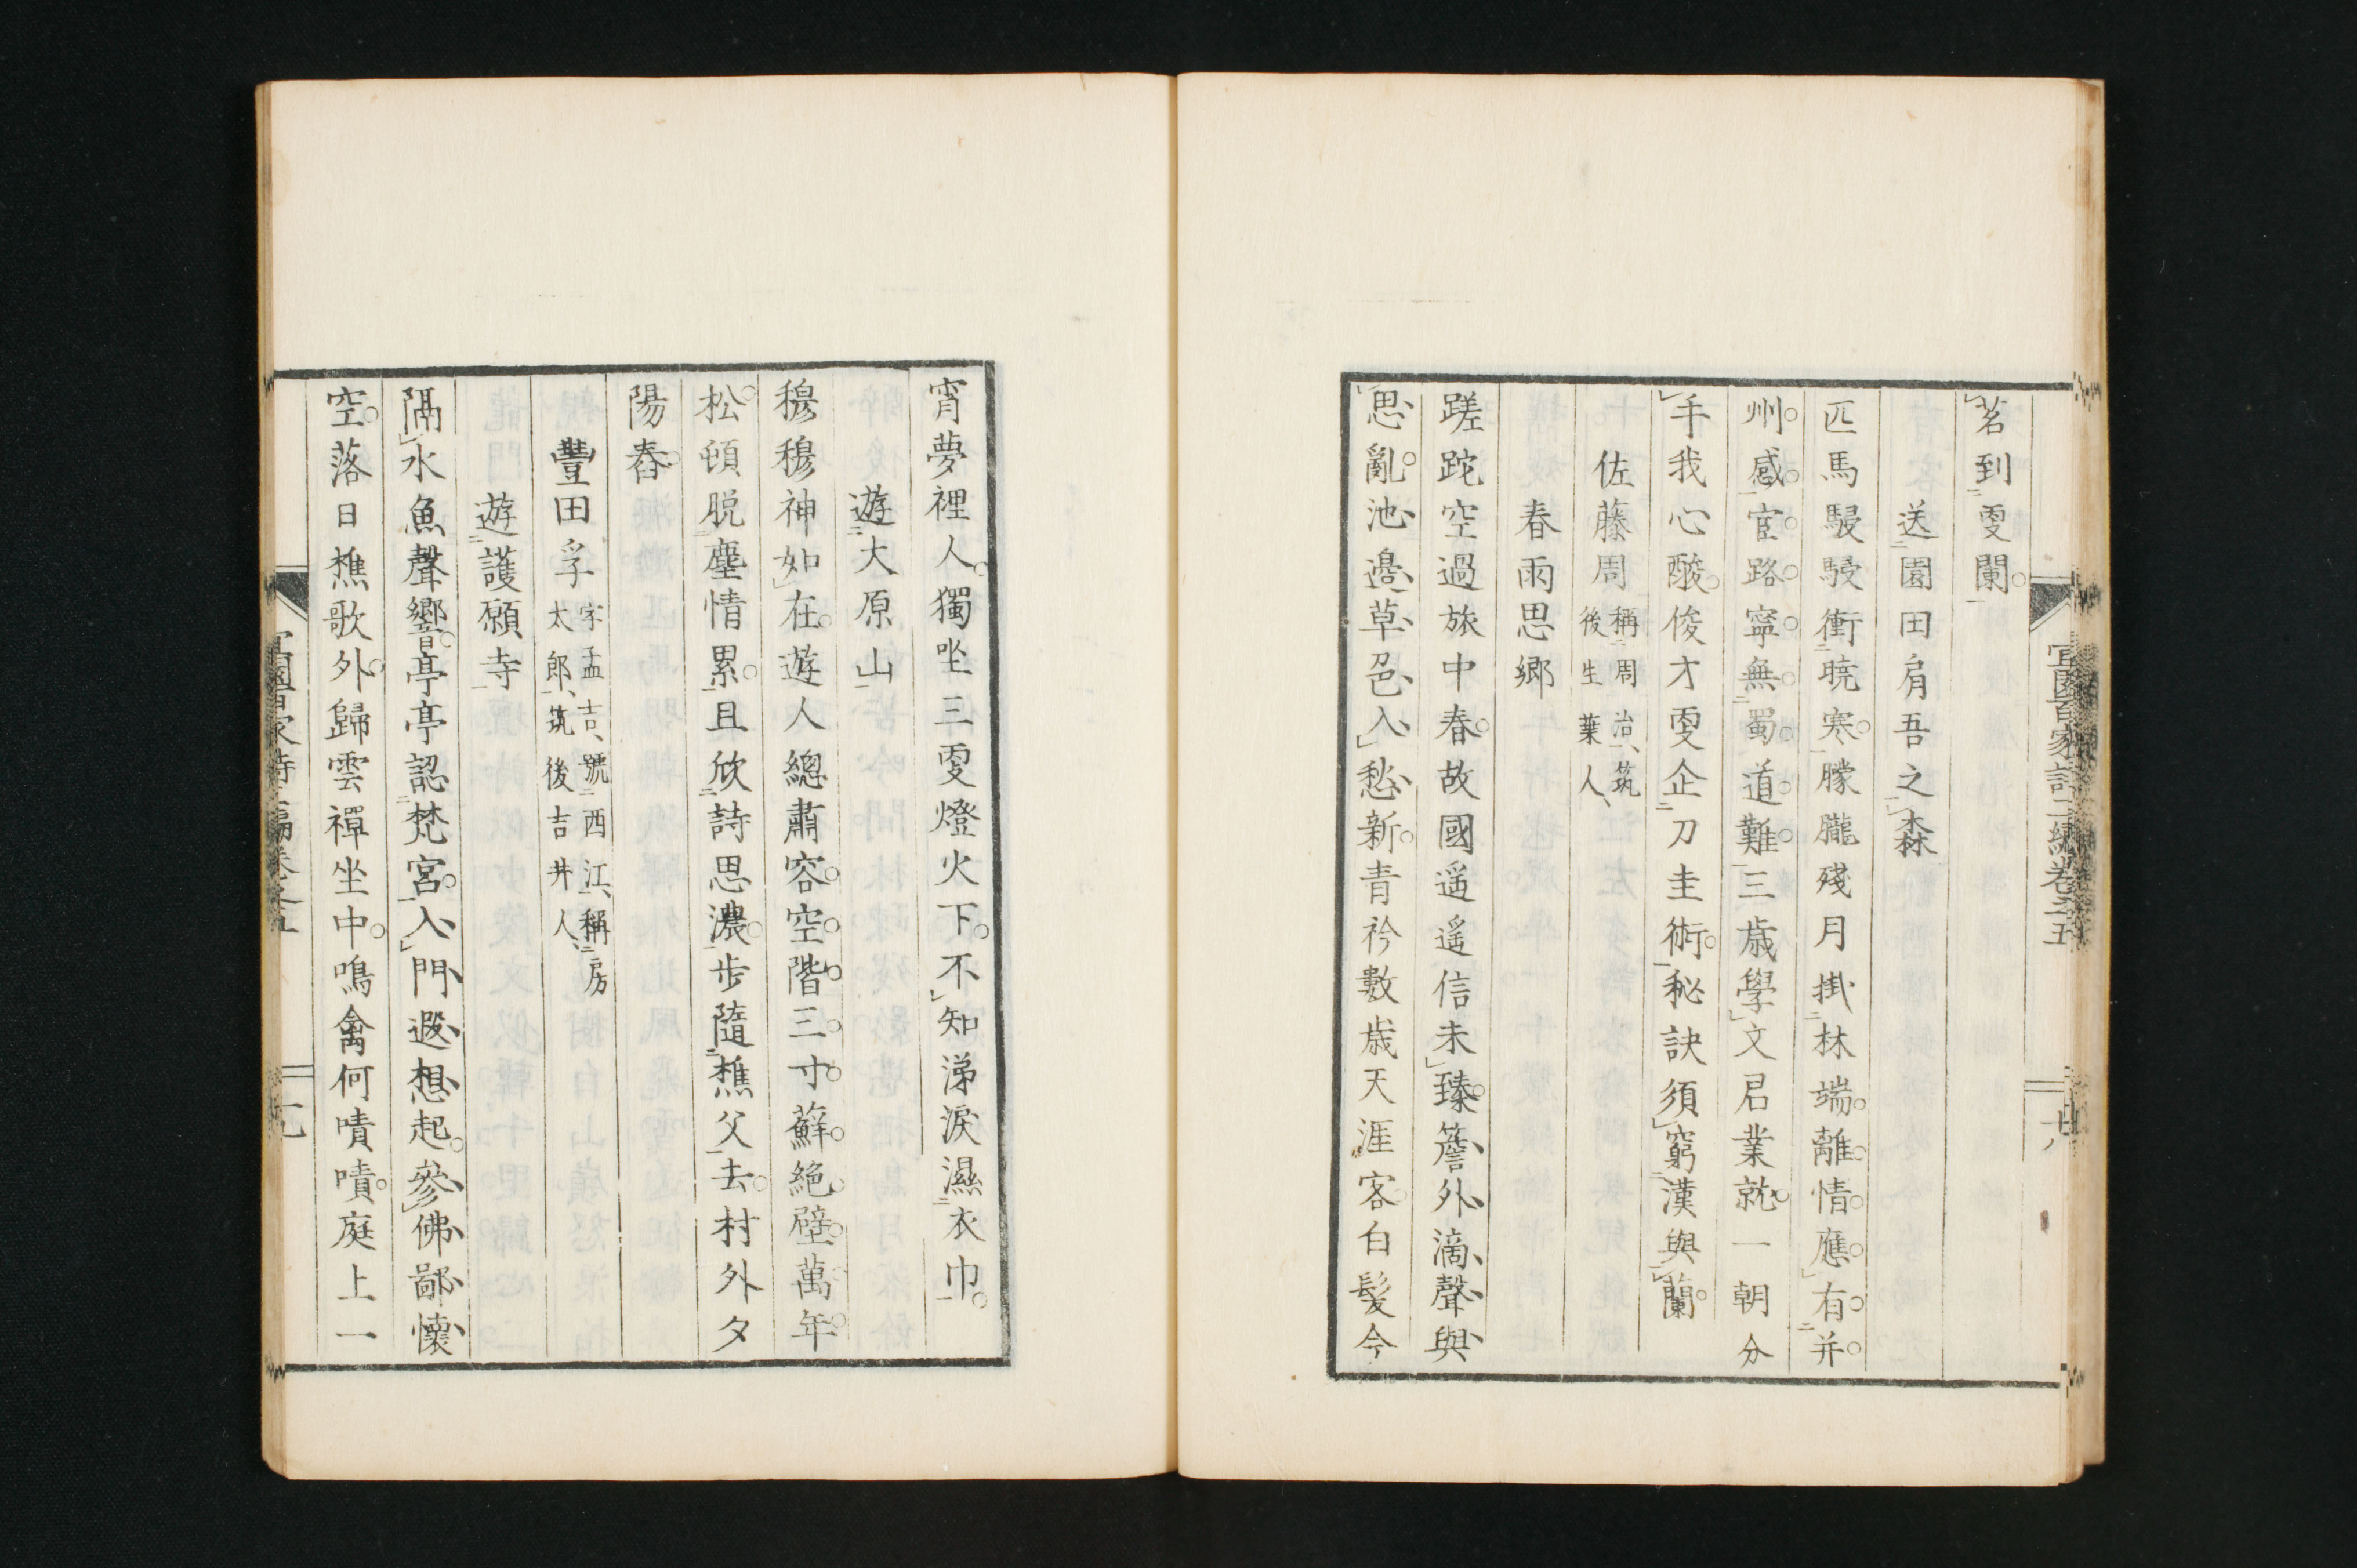 茗到更闌
送園田肩吾之森
匹馬駸駸衝暁寒朦朧殘月掛林端離情應有并
州感宦路寧無蜀道難三歳學文君業就一朝分
手我心酸俊才更企刀圭術秘訣須窮漢與蘭
佐藤周稱周治、筑後生葉人、
春雨思郷
蹉跎空過旅中春故國遥遥信未臻簷外滴聲與
思亂池邉草色入愁新青衿數歳天涯客白髪今
宜園百家詩二編卷之五
十八
宵夢裡人獨坐三更燈火下不知涕淚濕衣巾
遊大原山
穆穆神如在遊人總肅容空階三寸蘚絶壁萬年
松頓脱塵情累且欣詩思濃歩隨樵父去村外夕
陽舂
豐田孚字孟吉、號西江、稱房太郎、筑後吉井人、
遊護願寺
隔水魚聲響亭亭認梵宮入門遐想起參佛鄙懷
空落日樵歌外歸雲禪坐中鳴禽何嘖嘖庭上一